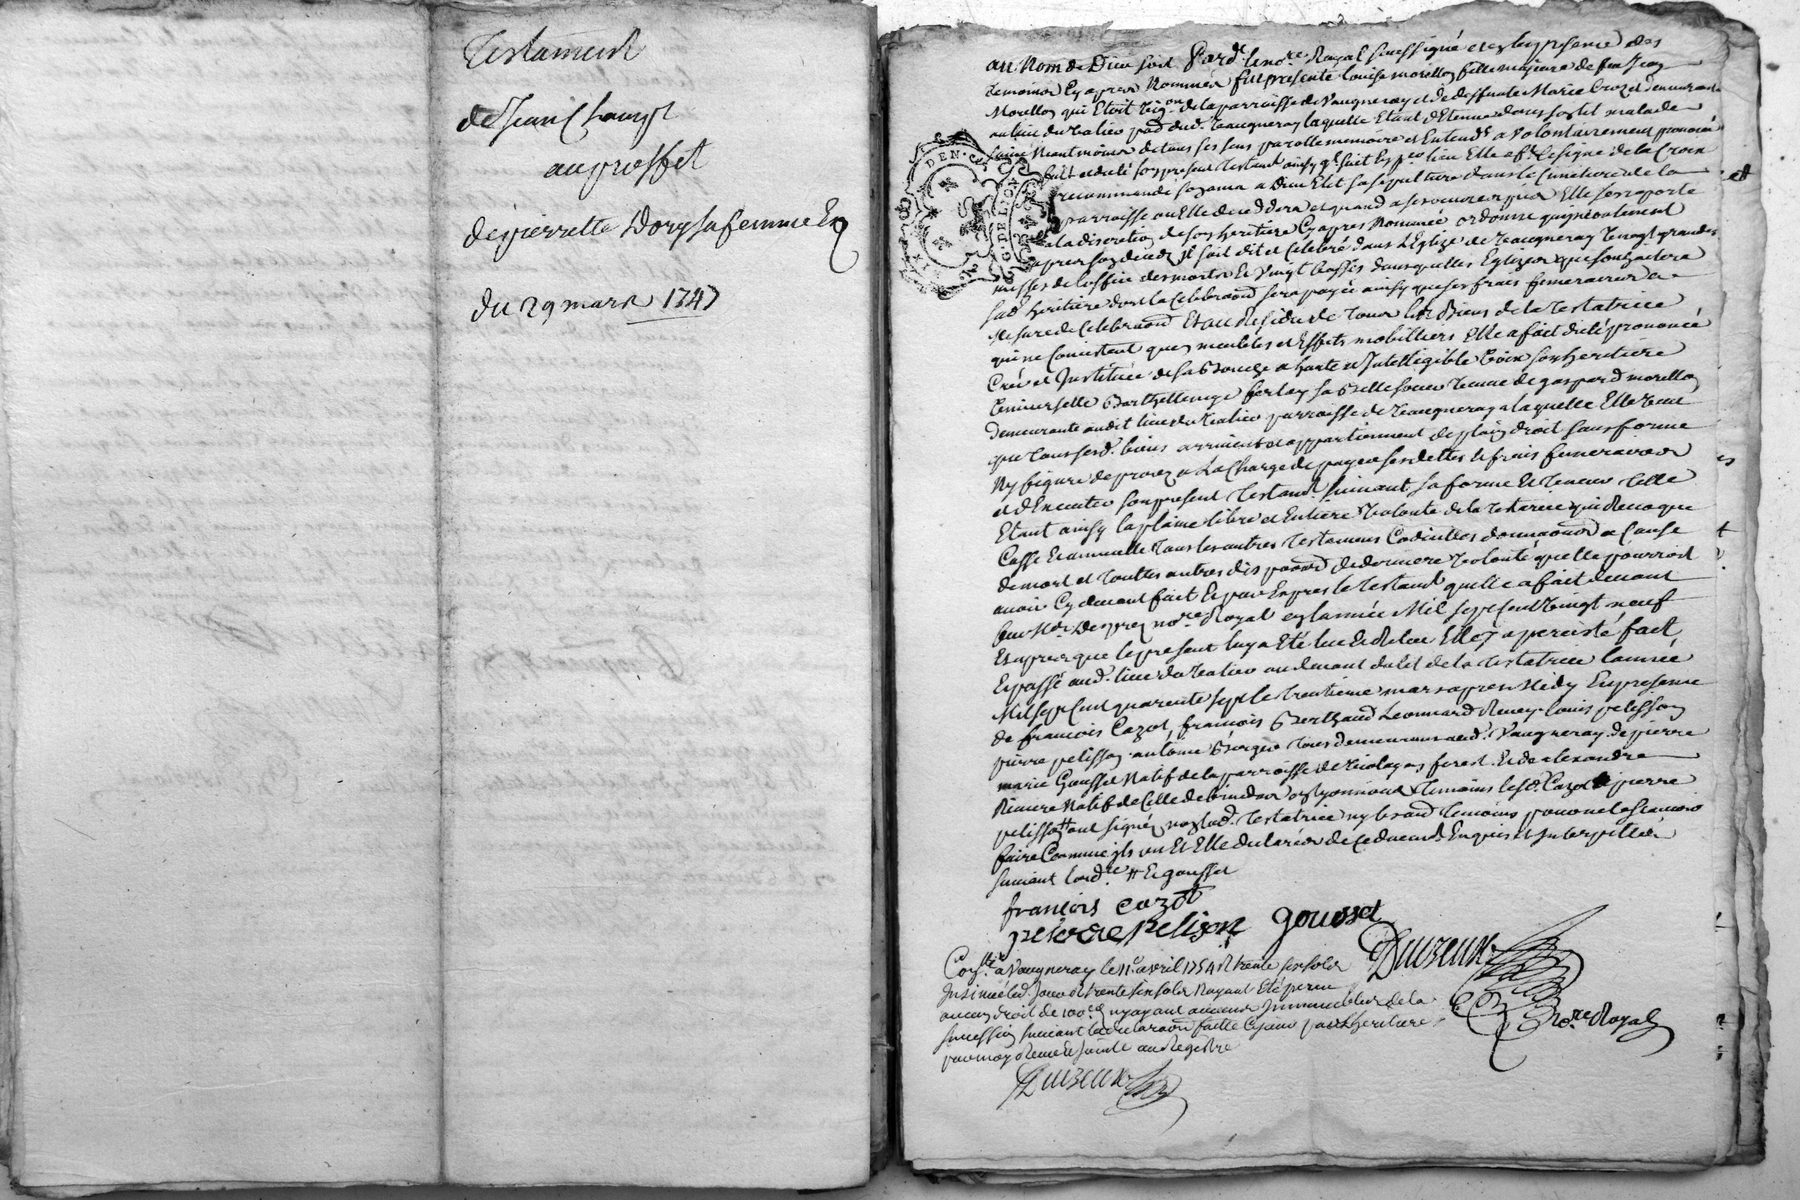 Testament
de Jean Champt
au proffit
de pierrette Dory sa femme En
du 29 mars 1747
au Nom de Dieu soit Pard. le no.re Royal soussigné et en la presence des
temoins Cy apres Nommés fut presente Louise morellon fille majeure de feu Jean
Morellon qui Etoit de la parroisse de Vaugneray et de deffunte Marie Croz demeurante
au lieu du Talieu parr. dud. Vaugneray laquelle Etant detenue dans son lit malade
saine Neantmoins de tous ses sens parolle memoire et Entend.t a Volontairement prononcé
fait et dicté son present Testam.t ainsy q.l suit En p.er lieu Elle a fait le signe de la Croix
recommandé son ame a Dieu Elit sa sepulture dans le cimetiere de la
parroisse ou Elle decedera et quand a ses oeuvres pies Elle s'en raporte
a la discretion de son heritiere Cy apres Nommée ordonne qu'incontinent
apres son deceds il soit dit et Celebré dans l'Eglize de Vaugneray Vingt grandes
messes de l'office des morts Et Vingt basses dans quelles Eglizes que souhaitera
sad. heritiere dont la Celebraon sera payée ainsy que ses frais funeraires a
Mesure de Celebraon Et au Residu de Tous les Biens de la Testatrice
qui ne Consistent qu'en meubles et Effets mobilliers Elle a fait dicté prononcé
Créé et Institué de sa Bouche a haute et Intelligible Voix son heritiere
Universelle Barthellemye ferlay sa Belle soeur Veuve de gaspard morellon
demeurante audit lieu du Talieu parroisse de Vaugneray a laquelle Elle veut
que Tous sesd. biens arrivent et appartiennent de plain droit sans forme
Ny figure de procez a La Charge de payer ses dettes et frais funeraires
et d'Executer son present Testam.t suivant sa forme Et Teneur Telle
Etant ainsy la plaine libre et Entiere Volonté de la Testatrice qui Revoque
Casse Et annulle Tous les autres Testamens Codicilles donnaons a Cause
de mort et Touttes autres disposons de derniere Volonté qu'elle pourroit
avoir Cy devant fait Et par Expres le Testam.t qu'elle a fait devant
feu M.e no.re Royal en l'année Mil sept Cent Vingt neuf
Et apres que le present luy a Eté lu Et Relu Elle y a percisté fait
Et passé aud. lieu du Talieu au devant du lit de la Testatrice l'année
Mil sept Cent quarente sept le Trentieme mars apres Midy En presence
de francois Cazot, francois Berthaud Leonnard Rivey louis pelisson
pierre pelisson antoine Tous demeurans aud. Vaugneray de pierre
marie Gousset Natif de la parroisse de en forest Et de alexandre
Riviere Natif de Celle de en Lyonnois Temoins lesd. Cazot pierre
pelisson ont signé non lad. Testatrice ny les autres Temoins pour ne le scavoir
faire Comme ils ont Et Elle declaré de Ce duement Enquis et Interpellés
suivant l'ord.re # Et gousset
francois cazot
pierre pelison gousset
Duizeux
no.re Royal
Con.llé a Vaugneray le 11.e avril 1754 R trente six sols
Insinué led. jour Et trente six sols Nayant Eté perçu
aucun droit de 100.e d. ny ayant aucuns Immeubles de la
succession suivant la declaraon faitte Ce jour par l'heritiere
par moy Retenue jointe au Registre
Duizeux